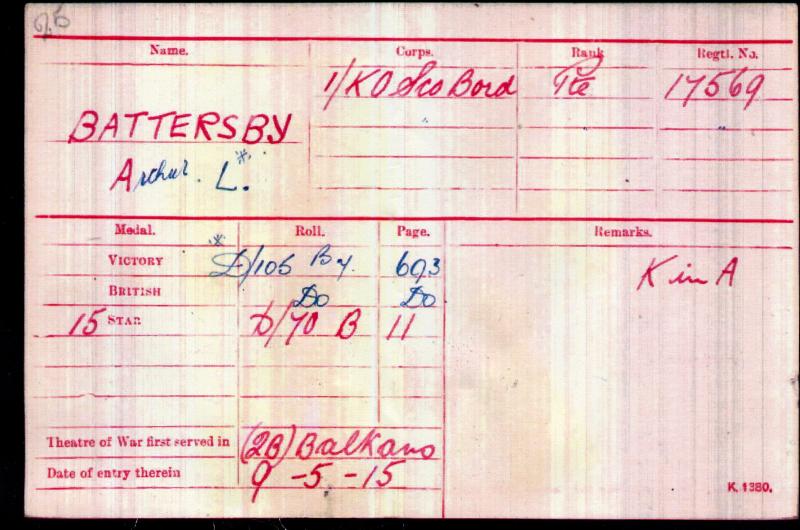 Name. Corps. Rank Regtl. No.
1/KO Sco Bord Pte 17569
BATTERSBY "  "
Arthur. L.*
Medal. * Roll. Page. Remarks.
VICTORY D/105 B4. 693 K in A
BRITISH Do Do
15 STAR D/70 B 11
Theatre of War first served in (2B) Balkans
Date of entry therein 9 -5 -15
K. 1380.